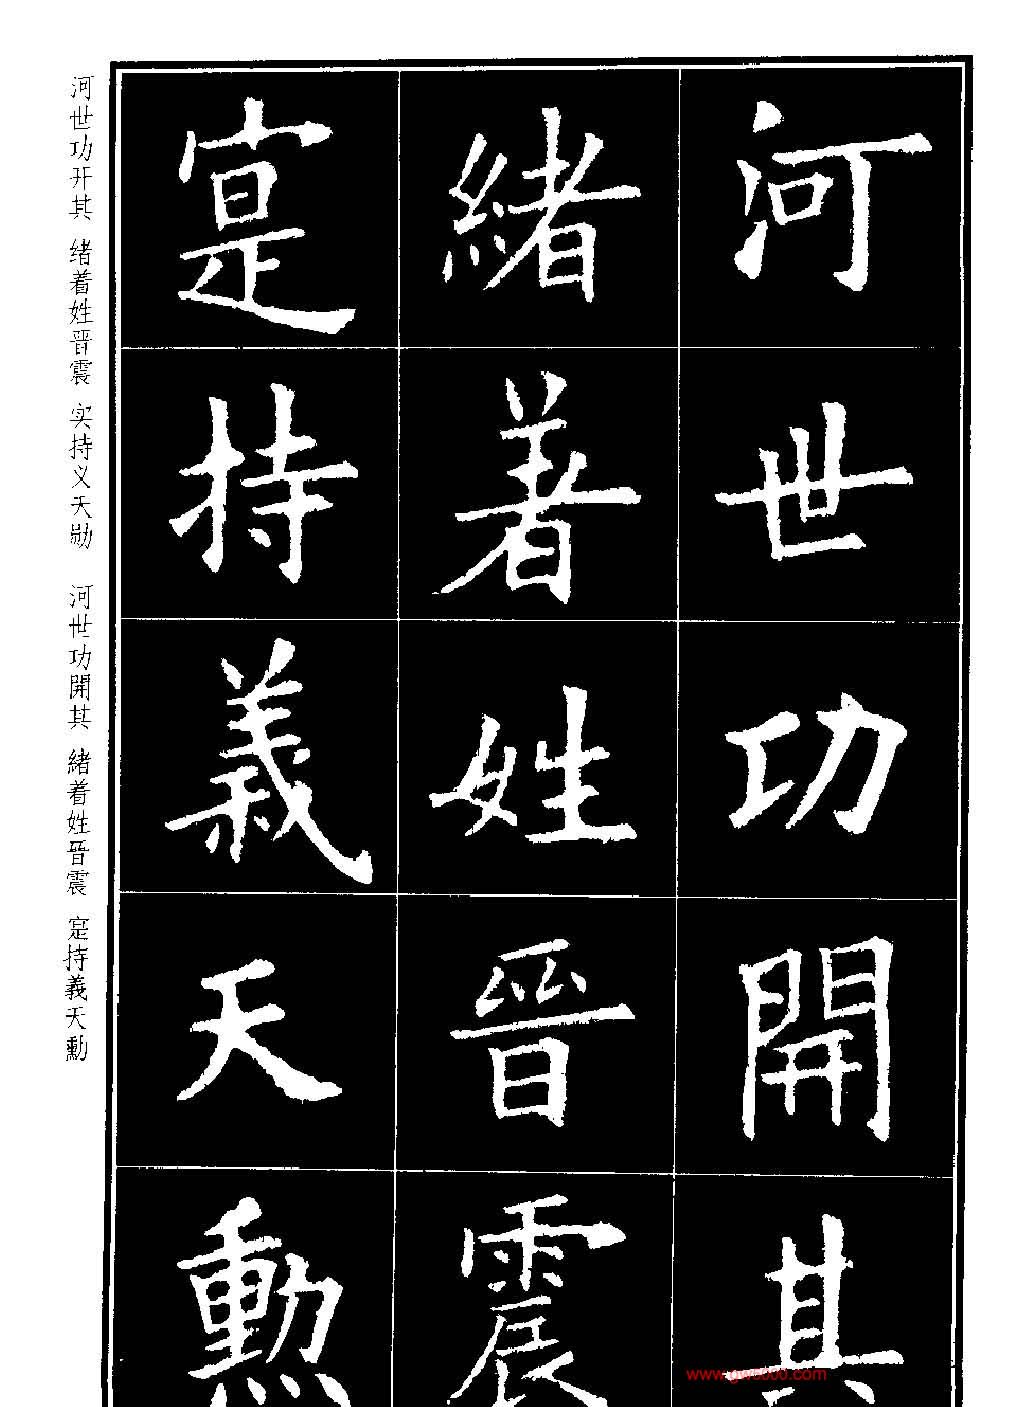 河世功開其
緒著姓晉震
寔持義天勳
河世功开其 绪着姓晋震 实持义天勋 河世功開其 緒着姓晉震 寔持義天勳
www.gw5000.com